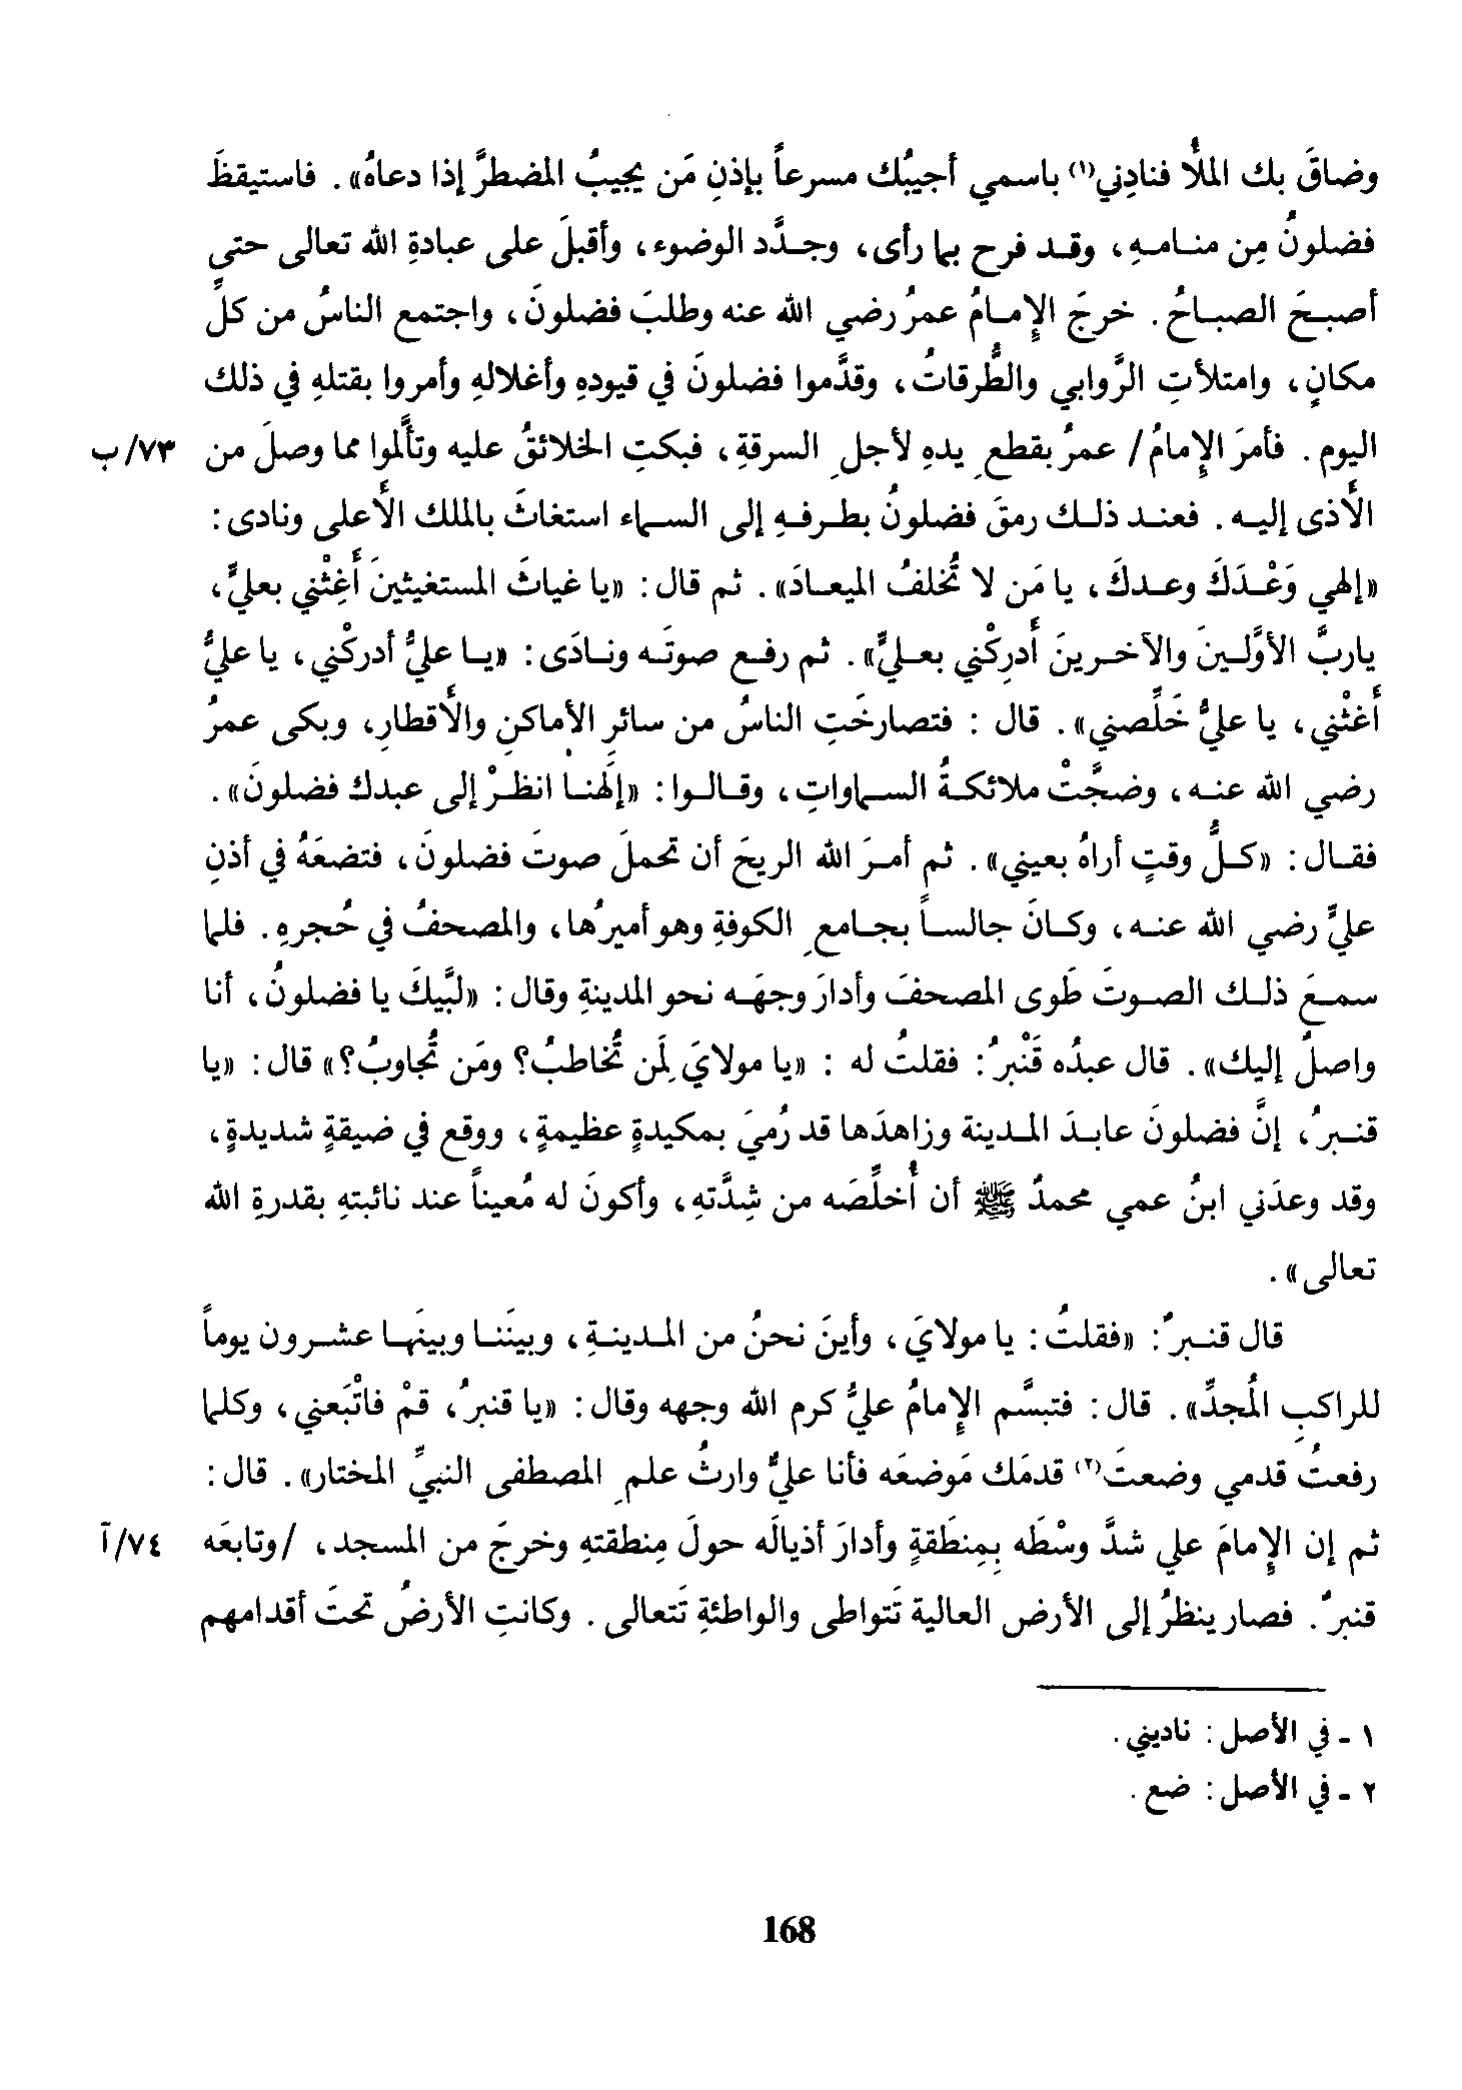 وضاقَ بك الملأُ فنادِني(١) باسمي أجيبُك مسرعاً بإذنِ مَن يجيبُ المضطرَّ إذا دعاهُ». فاستيقظَ
فضلونُ مِن منامهِ، وقد فرح بما رأى، وجدَّد الوضوء، وأقبلَ على عبادةِ الله تعالى حتى
أصبحَ الصباحُ. خرجَ الإمامُ عمرُ رضي الله عنه وطلبَ فضلونَ، واجتمع الناسُ من كلِّ
مكانٍ، وامتلأتِ الرَّوابي والطُّرقاتُ، وقدَّموا فضلونَ في قيودهِ وأغلالهِ وأمروا بقتلهِ في ذلك
اليوم. فأمرَ الإمامُ/ عمرُ بقطعِ يدهِ لأجلِ السرقةِ، فبكتِ الخلائقُ عليه وتألَّموا مما وصلَ من ٧٣/ب
الأذى إليه. فعند ذلك رمقَ فضلونُ بطرفهِ إلى السماء استغاثَ بالملك الأعلى ونادى:
«إلهي وَعْدَكَ وعدكَ، يا مَن لا تُخلفُ الميعادَ». ثم قال: «يا غياثَ المستغيثينَ أَغِثْني بعليٍّ،
ياربَّ الأوَّلينَ والآخرينَ أَدرِكْني بعليٍّ». ثم رفع صوتَه ونادَى: «يا عليُّ أدركْني، يا عليُّ
أَغثْني، يا عليُّ خَلِّصني». قال: فتصارخَتِ الناسُ من سائرِ الأماكنِ والأقطارِ، وبكى عمرُ
رضي الله عنه، وضجَّتْ ملائكةُ السماواتِ، وقالوا: «إلَهنا انظرْ إلى عبدك فضلونَ».
فقال: «كلُّ وقتٍ أراهُ بعيني». ثم أمرَ الله الريحَ أن تحملَ صوتَ فضلونَ، فتضعَهُ في أذنِ
عليٍّ رضي الله عنه، وكانَ جالساً بجامعِ الكوفةِ وهو أميرُها، والمصحفُ في حُجرهِ. فلما
سمعَ ذلك الصوتَ طَوى المصحفَ وأدارَ وجهَه نحو المدينةِ وقال: «لبَّيكَ يا فضلونُ، أنا
واصلٌ إليك». قال عبدُه قَنْبرُ: فقلتُ له : «يا مولايَ لِمَن تُخاطبُ؟ ومَن تُجاوبُ؟» قال: «يا
قنبرُ، إنَّ فضلونَ عابدَ المدينة وزاهدَها قد رُميَ بمكيدةٍ عظيمةٍ، ووقع في ضيقةٍ شديدةٍ،
وقد وعدَني ابنُ عمي محمدٌ ﷺ أن أُخلِّصَه من شِدَّتهِ، وأكونَ له مُعيناً عند نائبتهِ بقدرةِ الله
تعالى».
قال قنبرٌ: «فقلتُ: يا مولايَ، وأينَ نحنُ من المدينةِ، وبينَنا وبينَها عشرون يوماً
للراكبِ المُجدِّ». قال: فتبسَّم الإمامُ عليُّ كرم الله وجهه وقال: «يا قنبرُ، قمْ فاتْبَعني، وكلما
رفعتُ قدمي وضعتَ(٢) قدمَك مَوضعَه فأنا عليٌّ وارثُ علمِ المصطفى النبيِّ المختارِ». قال:
ثم إن الإمامَ علي شدَّ وسْطَه بِمِنطَقةٍ وأدارَ أذيالَه حولَ مِنطقتهِ وخرجَ من المسجد، /وتابعَه ٧٤/آ
قنبرٌ. فصار ينظرُ إلى الأرض العالية تَتواطى والواطئةِ تَتعالى. وكانتِ الأرضُ تحتَ أقدامهم
١ - في الأصل: ناديني.
٢ - في الأصل: ضع.
168